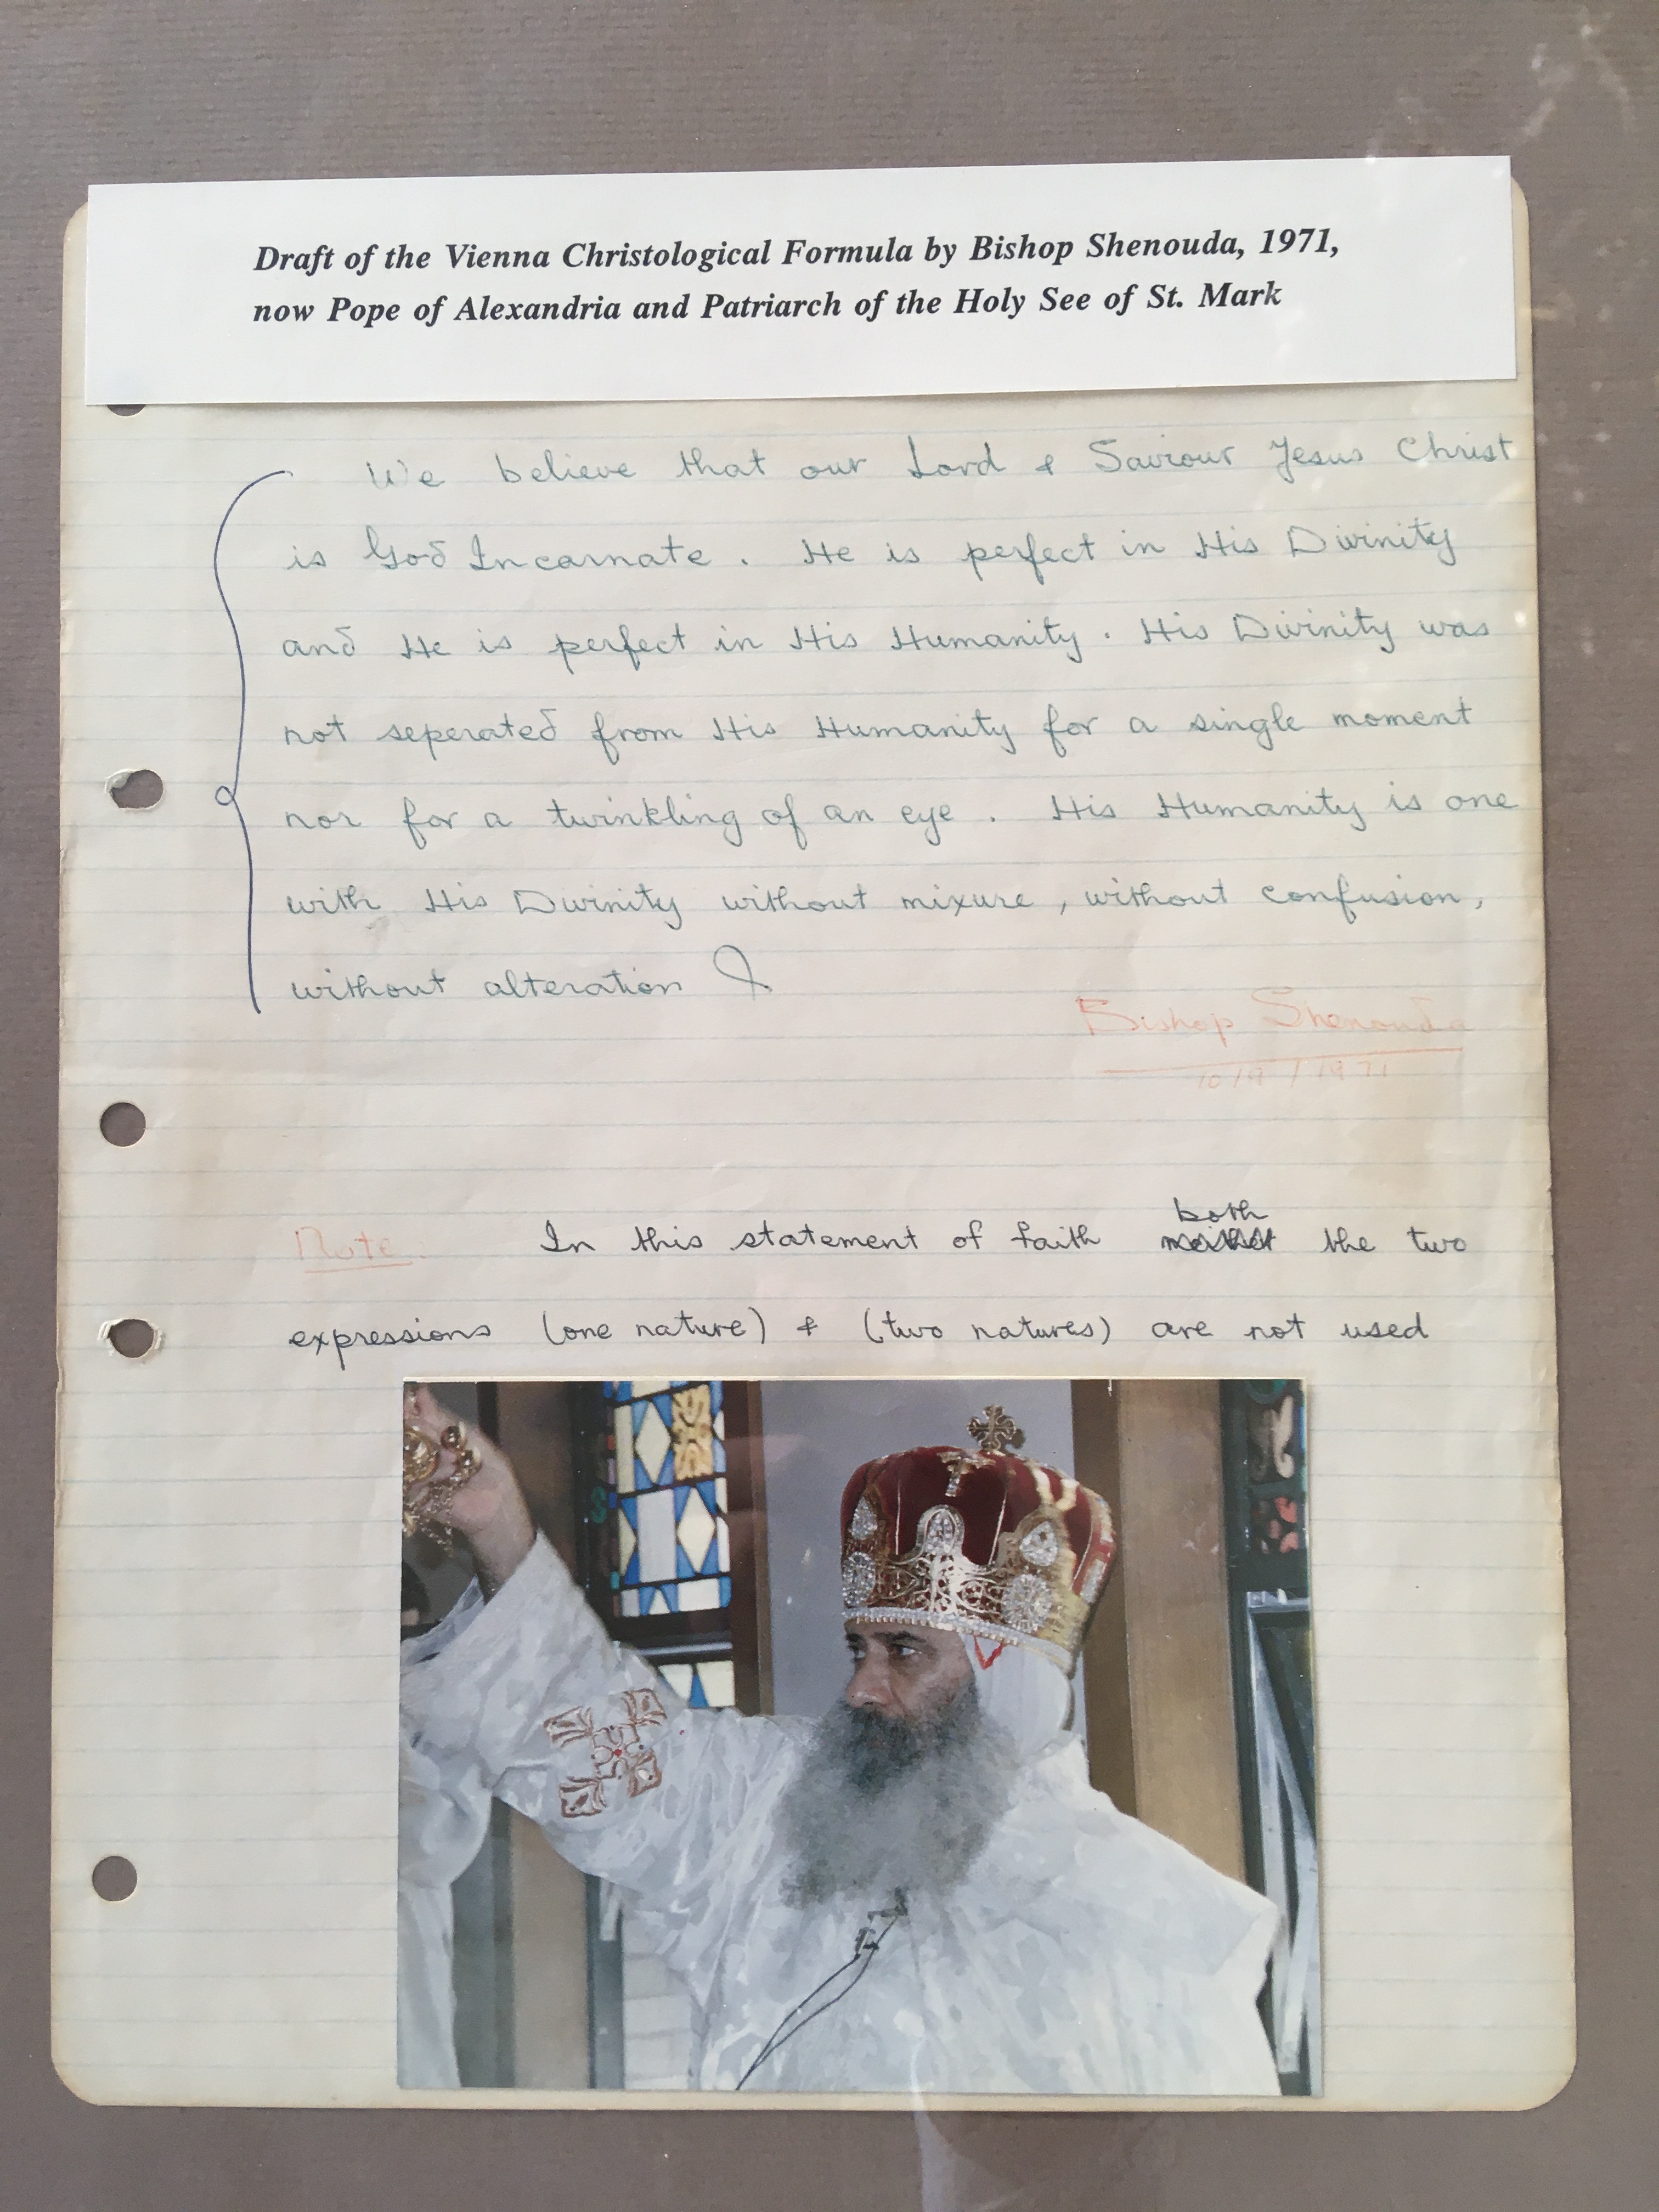 Draft of the Vienna Christological Formula by Bishop Shenouda, 1971,
now Pope of Alexandria and Patriarch of the Holy See of St. Mark
We believe that our Lord & Saviour Jesus Christ
is God Incarnate. He is perfect in His Divinity
and He is perfect in His Humanity. His Divinity was
not seperated from His Humanity for a single moment
nor for a twinkling of an eye. His Humanity is one
with His Divinity without mixure, without confusion,
without alteration
Bishop Shenouda
10/9/1971
both
Note. In this statement of faith the two
expressions (one nature) & (two natures) are not used